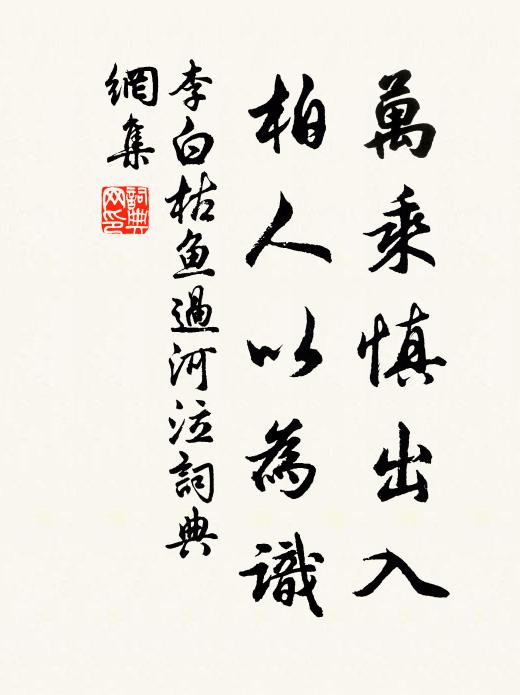 萬乘慎出入
柏人以為識
李白枯魚過河泣詞典
網集
詞典網印